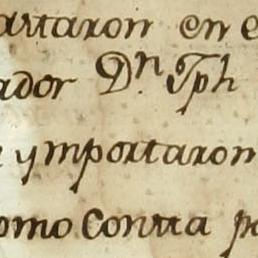 artaron en e
ador Dn Jph
e ymportaron
omo Contra pa